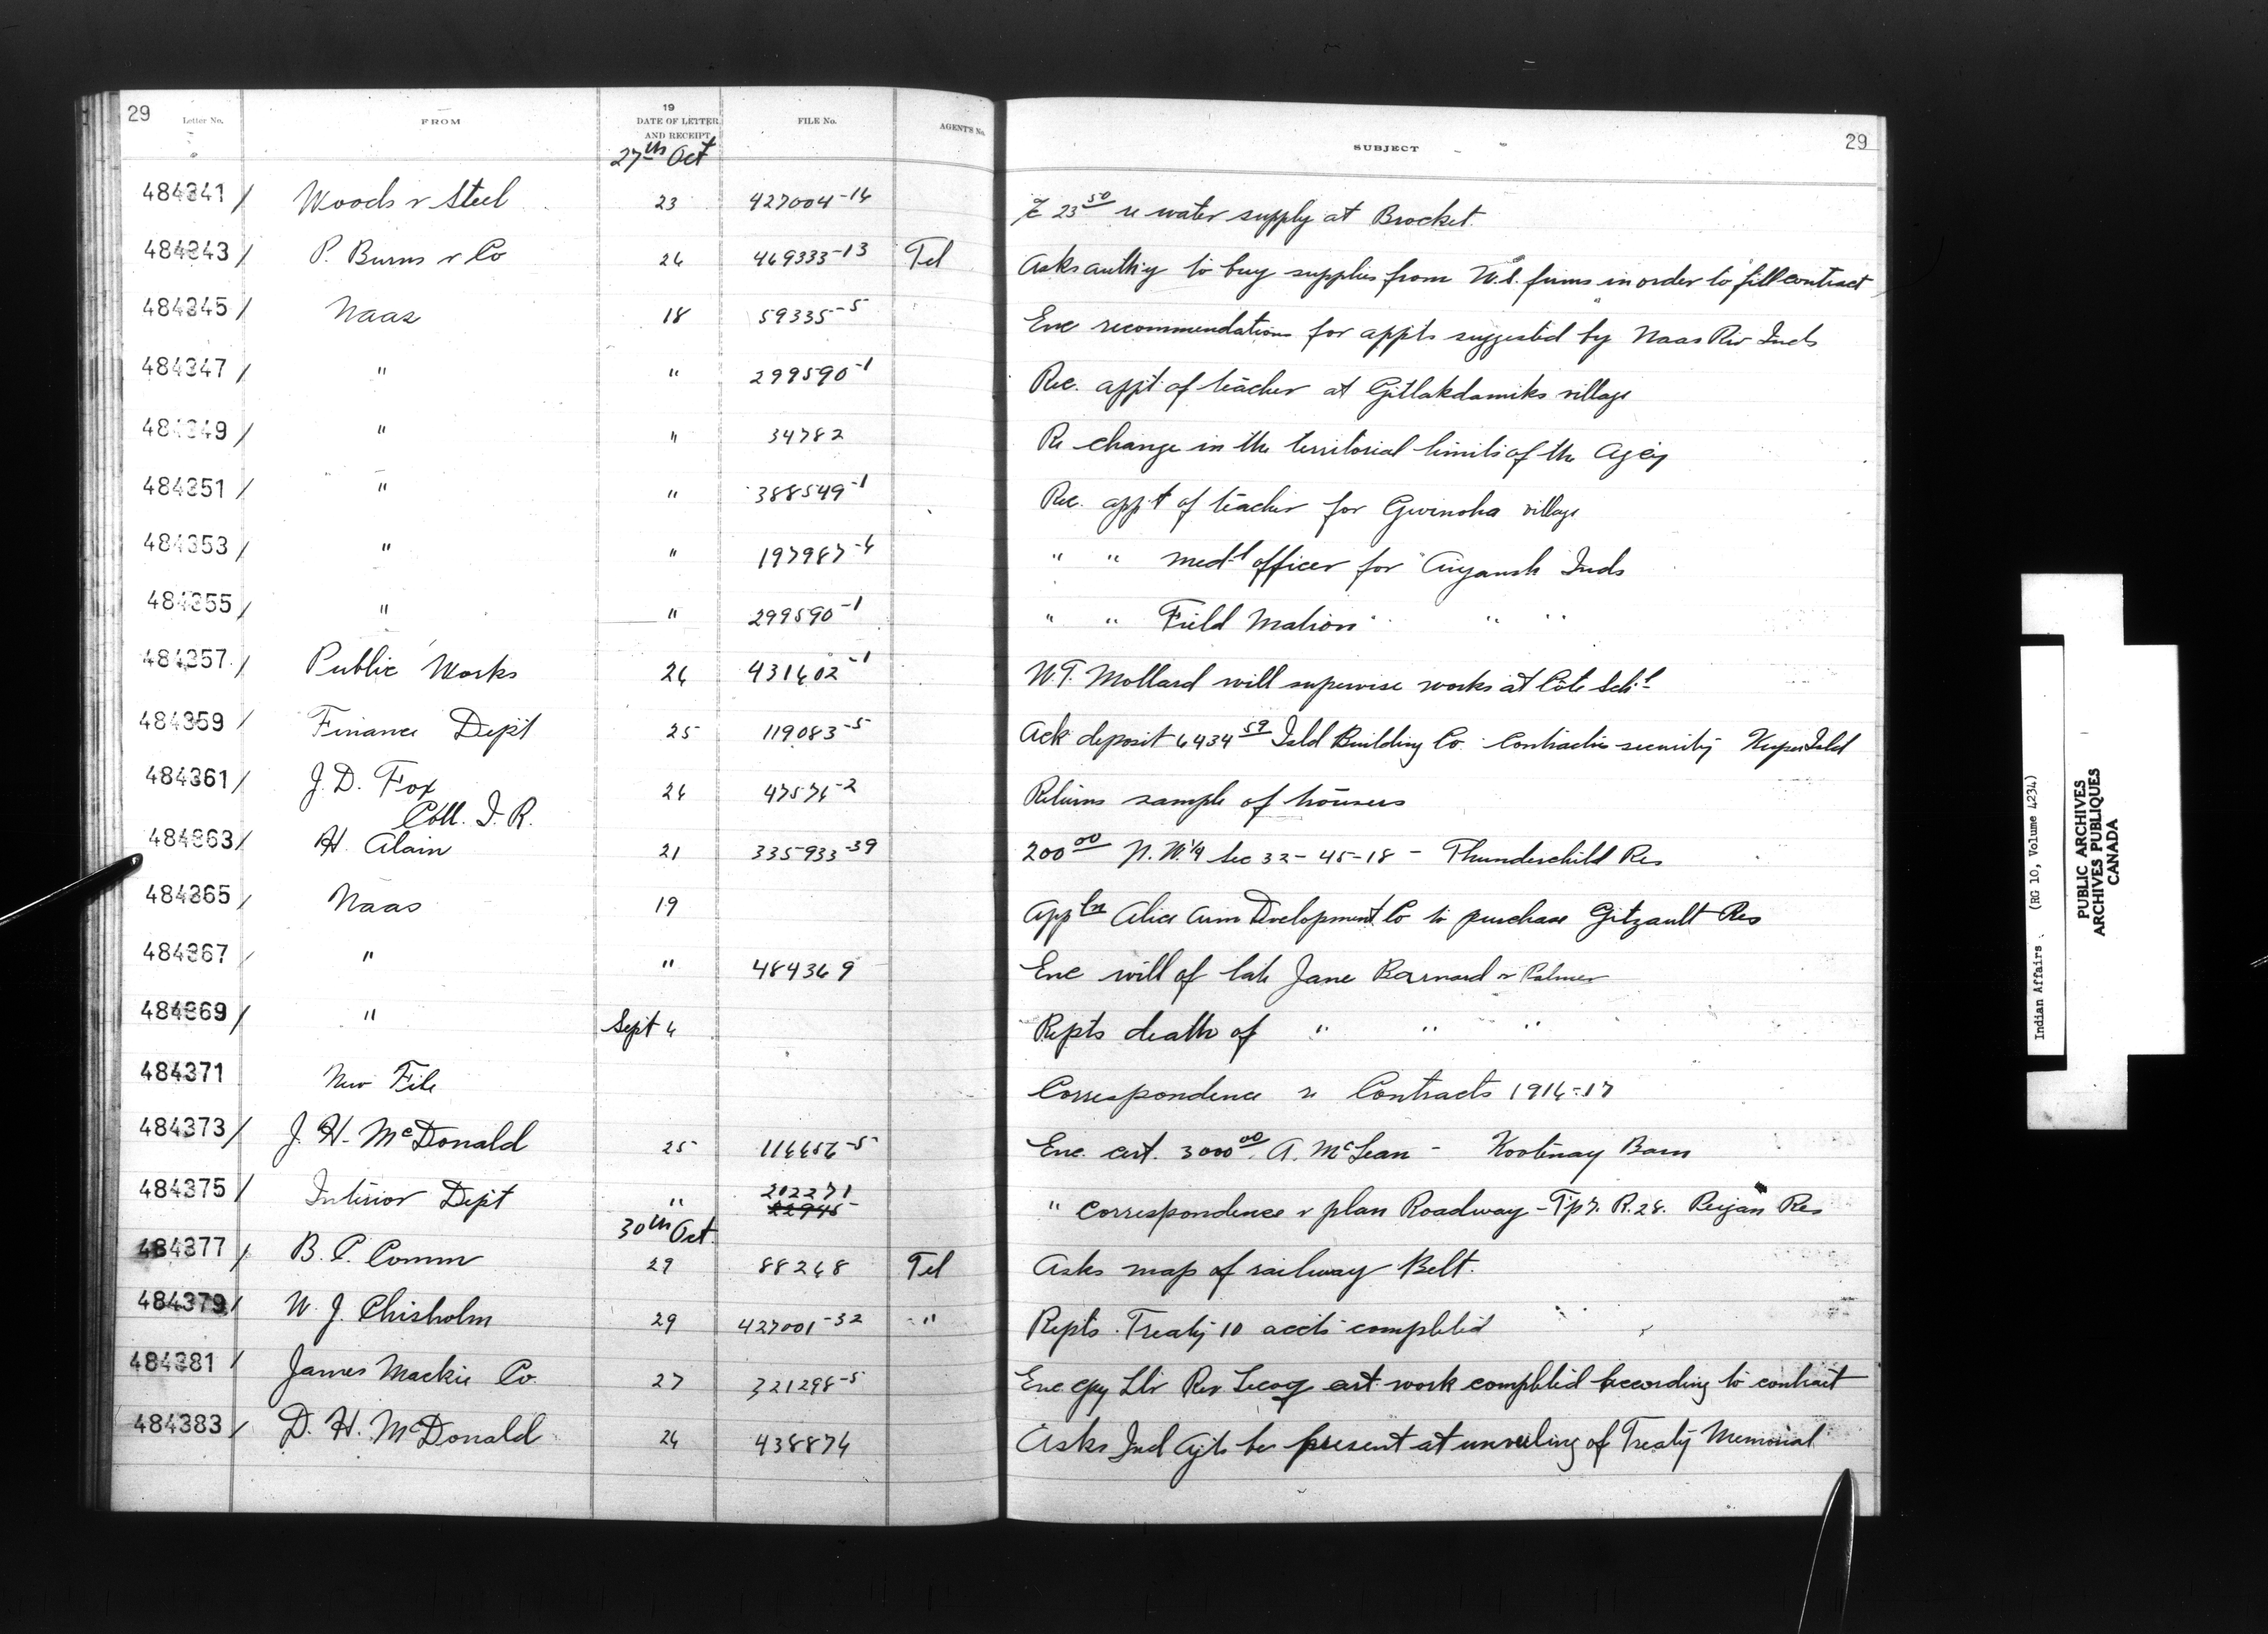 29 Letter No. FROM 19 DATE OF LETTER AND RECEIPT FILE No. AGENT'S No. SUBJECT 29
27th Oct
484341 / Woods & Steel 23 427004-14 23 50 re water supply at Brocket.
484343 / P. Burns & Co 26 469333-13 Tel Asks auth'y to buy supplies from U.S. firms in order to fill contract
484345 / Naas 18 59335-5 Enc recommendations for appts suggested by Naas Riv Inds
484347 / " " 299590-1 Rec. appt of teacher at Gitlakdamiks village
484349 / " " 34782 Re change in the territorial limits of the Agcy
484351 / " " 388549-1 Rec. appt of teacher for Gwinoha village
484353 / " " 197987-6 " " med-l officer for Aiyansh Inds
484355 / " " 299590-1 " " Field Matron " " "
484357 / Public Works 26 431602-1 W.T. Mollard will supervise works at Côte Sch-l
484359 / Finance Dept 25 119083-5 Ack deposit 6434 59 Isld Building Co. Contractors security Kuper Isld
484361 / J. D. Fox 26 47576-2 Returns sample of trousers
Coll. I. R.
484363 / H. Alain 21 335933-39 200 00 N.W. 1/4 Sec 32-45-18 - Thunderchild Res
484365 / Naas 19 App ln Alice Arm Development Co to purchase Gitzault Res
484367 / " " 484369 Enc will of late Jane Barnard or Palmer
484369 / " Sept 6 Repts death of " " "
484371 New File Correspondence re Contracts 1916-17
484373 / J. H. McDonald 25 116656-5 Enc. cert. 3000 00. A. McLean - Kootenay Barn
484375 / Interior Dept " 212271 22946- " Correspondence & plan Roadway - Tp 7. R. 28. Peigan Res
30th Oct.
484377 / B. C. Comm 29 88268 Tel Asks map of railway Belt.
484379 / W. J. Chisholm 29 427001-32 " Repts. Treaty 10 accts completed
484381 / James Mackie Co. 27 321298-5 Enc. cpy Ltr Rev Lecoq cert. work completed according to contract
484383 / D. H. McDonald 26 438874 Asks Ind Agt to be present at unveiling of Treaty Memorial
Indian Affairs. (RG 10, Volume 4234)
PUBLIC ARCHIVES
ARCHIVES PUBLIQUES
CANADA